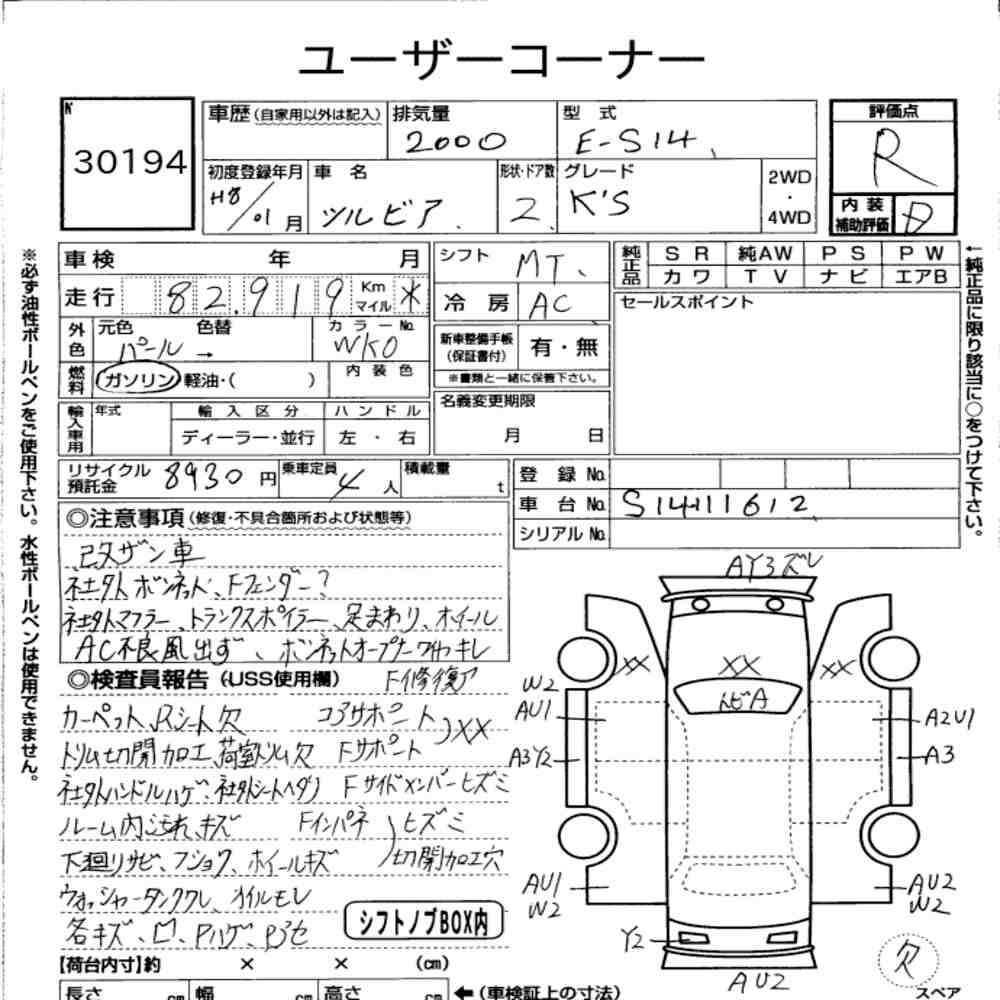 ユーザーコーナー
№ 30194
車歴(自家用以外は記入) 排気量 2000 型式 E-S14
評価点 R
初度登録年月 H8/01月 車名 シルビア 形状・ドア数 2 グレード K'S 2WD・4WD
内装補助評価 D
※必ず油性ボールペンをご使用下さい。水性ボールペンは使用できません。
車検 年 月
走行 82,919 Km マイル *
外色 元色 パール 色替 → カラーNo. WK0
燃料 ガソリン 軽油・( ) 内装色
輸入車用 年式 輸入区分 ハンドル
ディーラー・並行 左・右
シフト MT
冷房 AC
新車整備手帳(保証書付) 有・無
※書類と一緒に保管下さい。
名義変更期限
月 日
純正品 SR 純AW PS PW
カワ TV ナビ エアB
セールスポイント
←純正品に限り該当に○をつけて下さい。
リサイクル預託金 8930円 乗車定員 4人 積載量 t
登録No.
車台No. S14-111612
シリアルNo.
◎注意事項(修復・不具合箇所および状態等)
改ザン車
社外ボンネット、Fフェンダー?
社外マフラー、トランクスポイラー、足まわり、ホイール
AC不良風出ず、ボンネットオープナーワイヤーキレ
◎検査員報告(USS使用欄) F修復ア
カーペット、Rシート欠 コアサポート
トリム切開加工、荷室トリム欠 Fサポート )XX
社外ハンドルハゲ、社外シートヘタリ Fサイドメンバーヒズミ
ルーム内汚れ、キズ Fインパネ )ヒズミ
下廻りサビ、フショク、ホイールキズ 切開加工穴
ウォッシャータンクワレ、オイルモレ
各キズ、凹、Pハゲ、Pボセ シフトノブBOX内
AY3ズレ
XX XX XX
トビA
W2
AU1 A2U1
A3Y2 A3
AU1 AU2
W2 W2
Y2
AU2
欠
スペア
【荷台内寸】約 × × (cm)
長さ cm 幅 cm 高さ cm ←(車検証上の寸法)